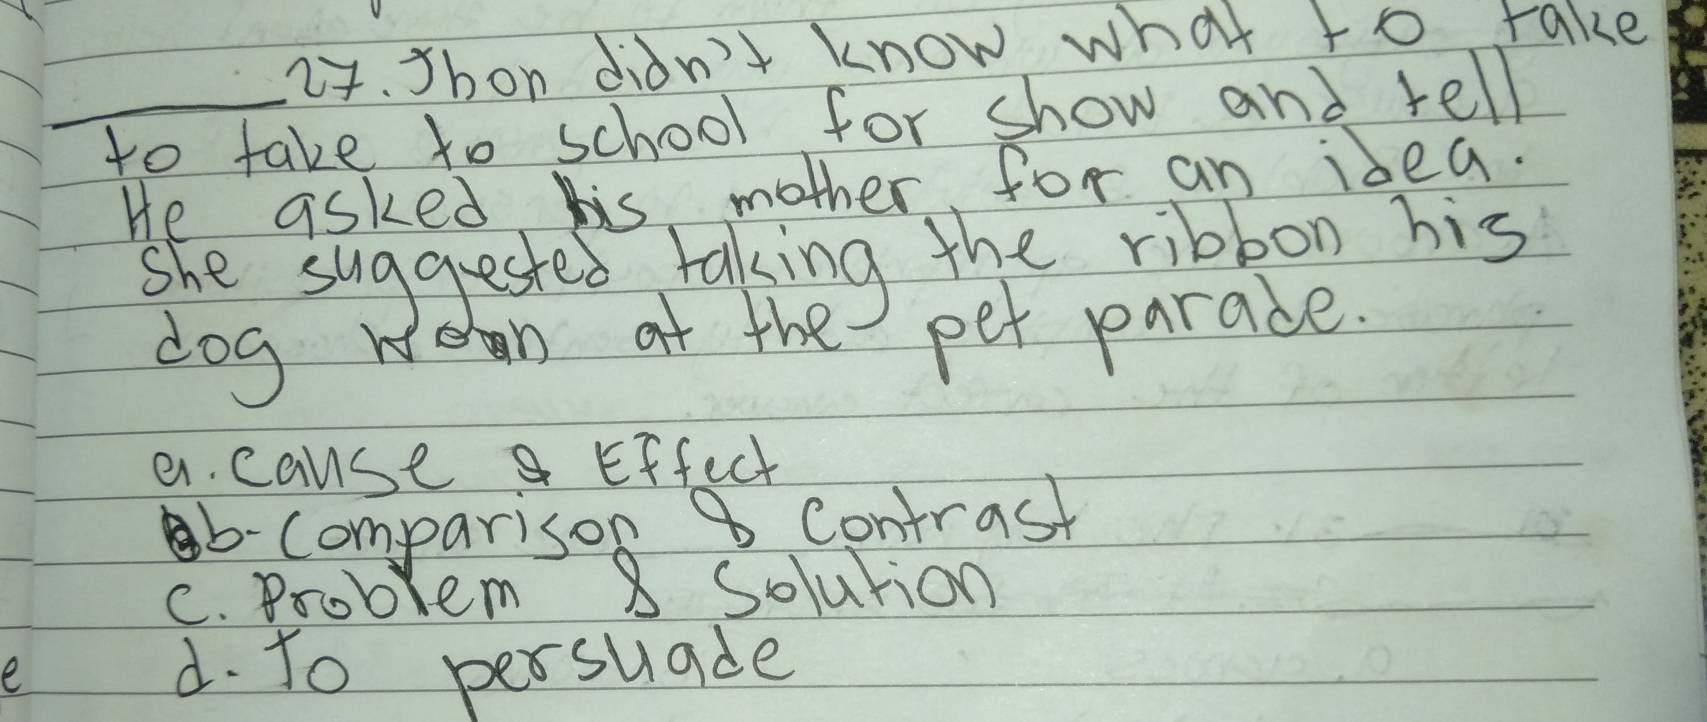 27. Jhon didn't know what to take
to take to school for show and tell
He asked his mother for an idea.
She suggested taking the ribbon his
dog won at the pet parade.
a. Cause & Effect
b- Comparison & Contrast
c. Problem & Solution
d. To persuade
e